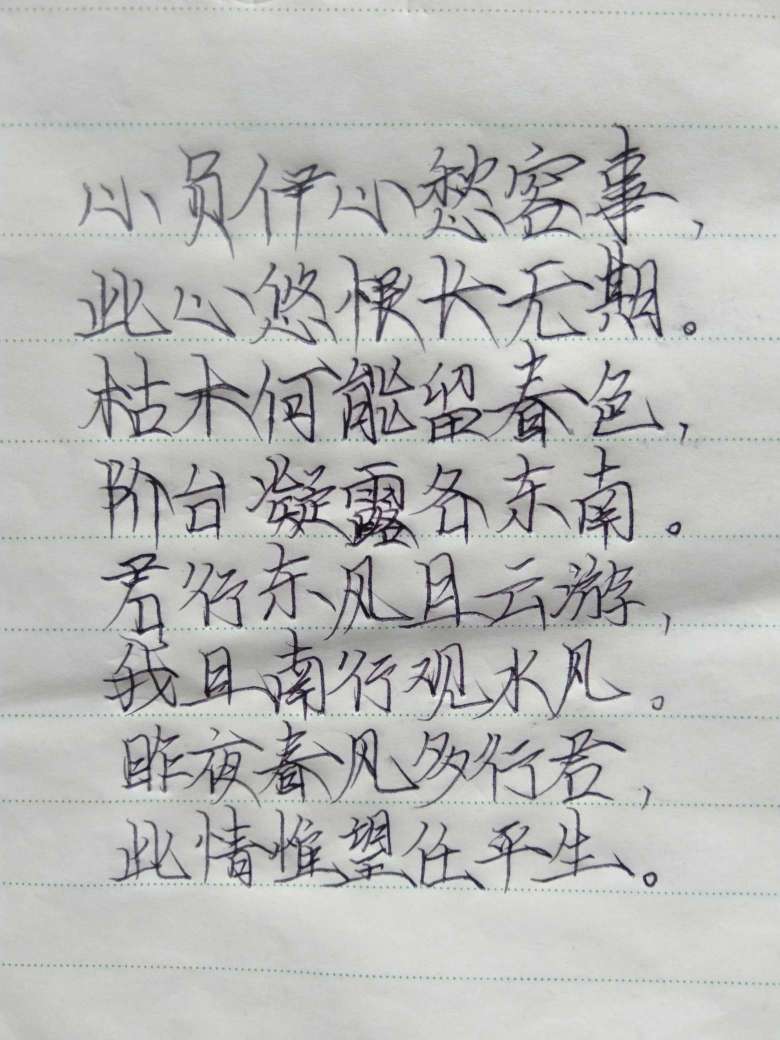 小员伊小愁容事，
此心悠恨长无期。
枯木何能留春色，
阶台凝露各东南。
君行东风且云游，
我且南行观水风。
昨夜春风多行君，
此情惟望任平生。